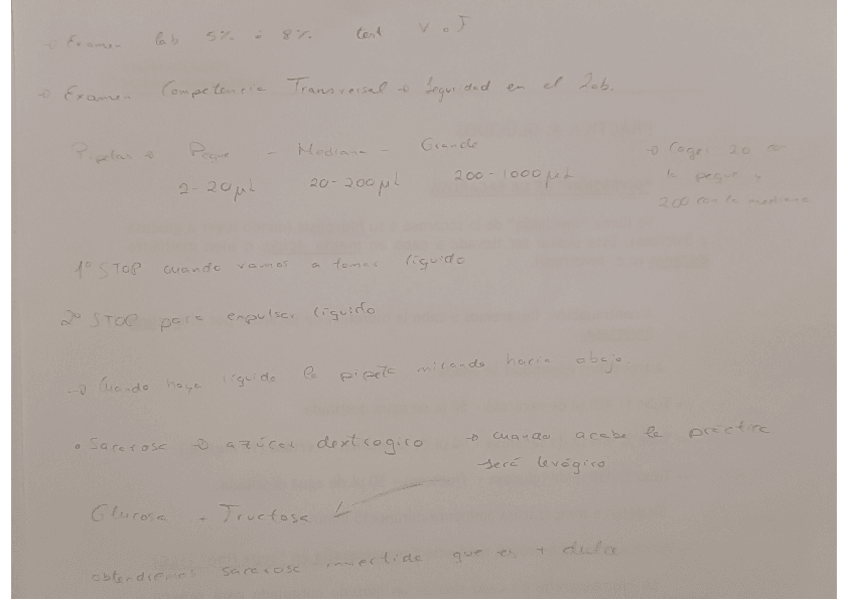 → Examen lab 5% ó 8% test V o F
→ Examen Competencia Transversal → Seguridad en el Lab.
Pipetas → Peque - Mediana - Grande → Coger 20 con
2-20 µL 20-200 µL 200-1000 µL la peque y
200 con la mediana
1º STOP cuando vamos a tomar líquido
2º STOP para expulsar líquido
→ Cuando haya líquido la pipeta mirando hacia abajo.
• Sacarosa → azúcar dextrogiro → cuando acabe la práctica
será levógiro
Glucosa + Fructosa
obtendremos sacarosa invertida que es + dulce